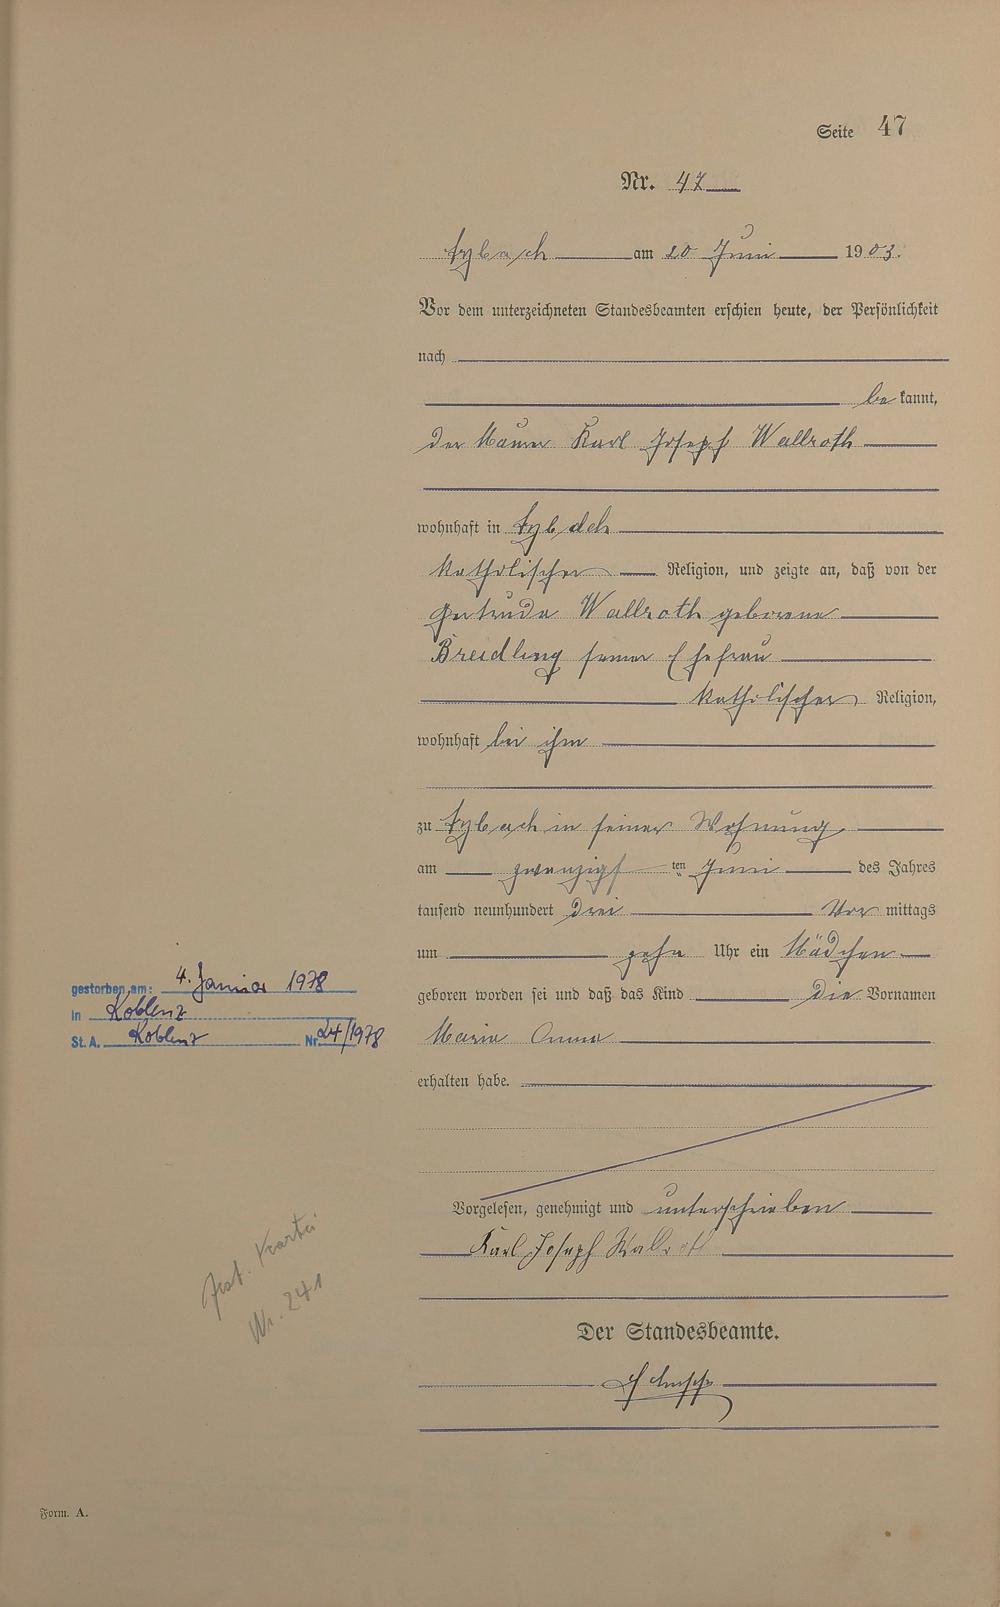 Seite 47
Nr. 47
am 20 Juni 1903.
Vor dem unterzeichneten Standesbeamten erschien heute, der Persönlichkeit
nach
be kannt,
der Maurer Karl Joseph Wallroth
wohnhaft in
katholischer Religion, und zeigte an, daß von der
Gertruda Wallroth geborene
Breidling seiner Ehefrau
katholischer Religion,
wohnhaft bei ihm
zu in seiner Wohnung
am zwanzigsten Juni des Jahres
tausend neunhundert drei Vor mittags
um zehn Uhr ein Mädchen
geboren worden sei und daß das Kind die Vornamen
Maria Anna
erhalten habe.
Vorgelesen, genehmigt und unterschrieben
Karl Joseph Walroth
Der Standesbeamte.
gestorben am: 4. Januar 1978
in Koblenz
St. A. Koblenz Nr. 24/1978
Kartei
Nr. 241
Form. A.